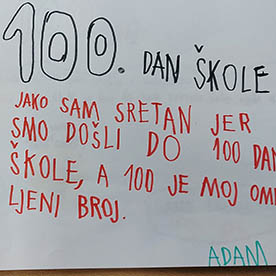 100. DAN ŠKOLE
JAKO SAM SRETAN JER
SMO DOŠLI DO 100 DAN
ŠKOLE, A 100 JE MOJ OMI
LJENI BROJ.
ADAM